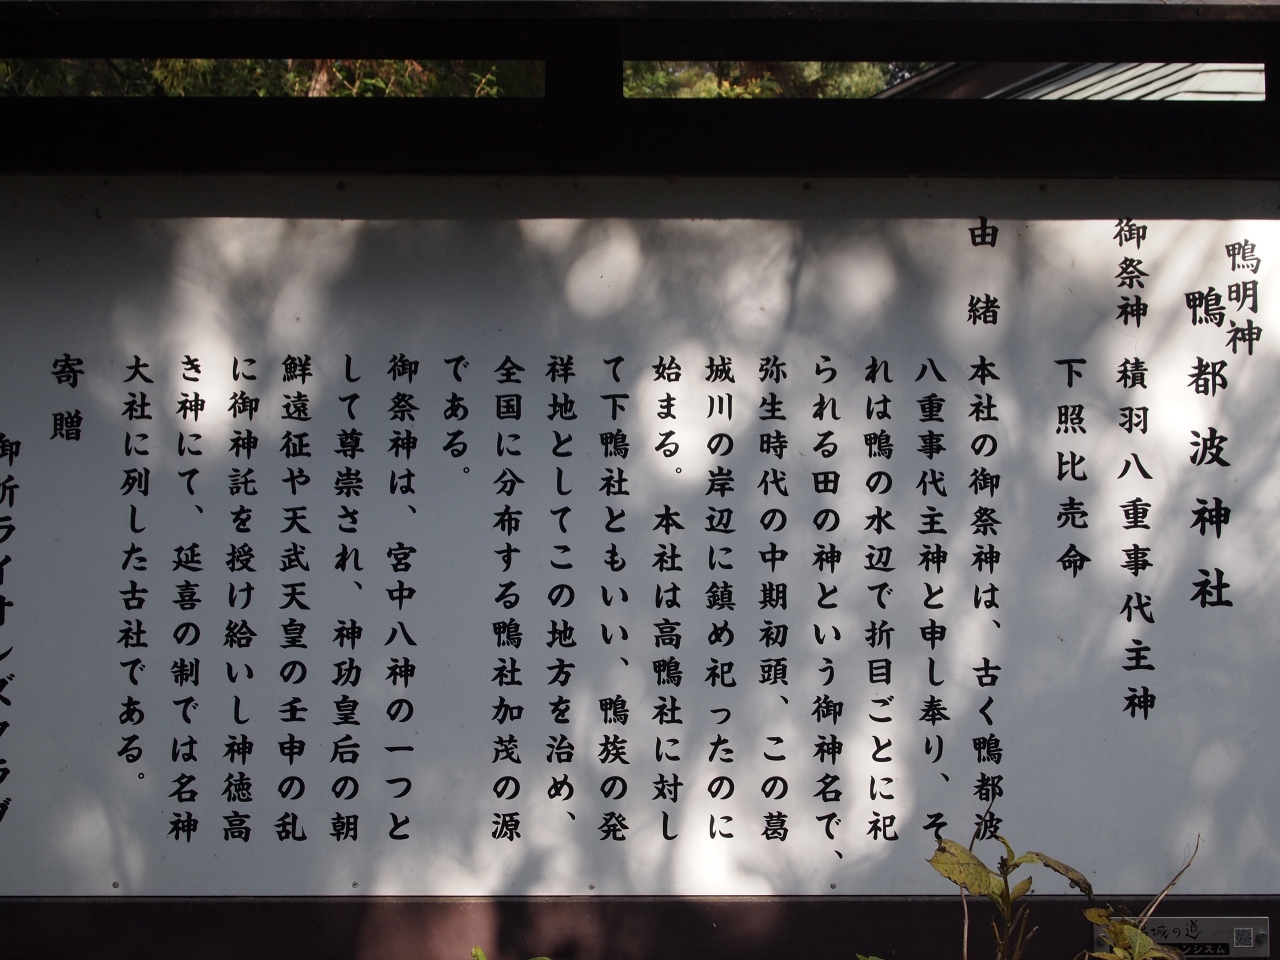 鴨明神
鴨都波神社
御祭神 積羽八重事代主神
下照比売命
由緒 本社の御祭神は、古く鴨都波
八重事代主神と申し奉り、そ
れは鴨の水辺で折目ごとに祀
られる田の神という御神名で、
弥生時代の中期初頭、この葛
城川の岸辺に鎮め祀ったのに
始まる。本社は高鴨社に対し
て下鴨社ともいい、鴨族の発
祥地としてこの地方を治め、
全国に分布する鴨社加茂の源
である。
御祭神は、宮中八神の一つと
して尊崇され、神功皇后の朝
鮮遠征や天武天皇の壬申の乱
に御神託を授け給いし神徳高
き神にて、延喜の制では名神
大社に列した古社である。
寄贈
御所ライオンズクラブ
城の道